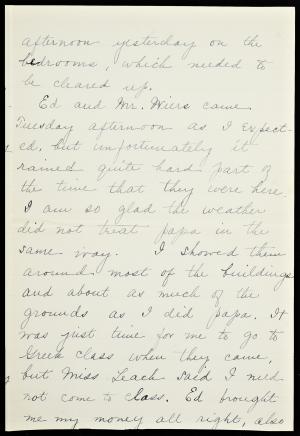 afternoon yesterday on the
bedrooms, which needed to
be cleared up.
Ed and Mr. Wiers came
Tuesday afternoon as I expect-
ed, but unfortunately it
rained quite hard part of
the time that they were here.
I am so glad the weather
did not treat papa in the
same way. I showed them
around most of the buildings
and about as much of the
grounds as I did papa. It
was just time for me to go to
Greek class when they came,
but Miss Leach said I need
not come to class. Ed brought
me my money all right, also